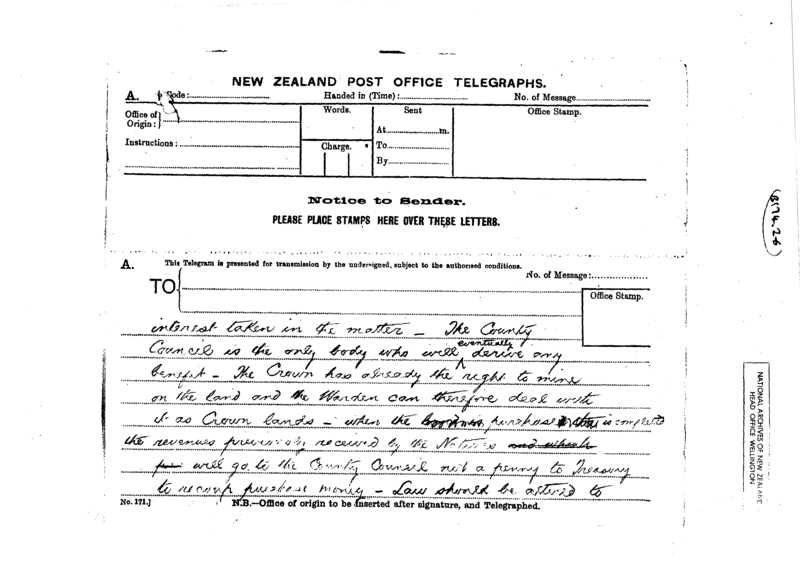 NEW ZEALAND POST OFFICE TELEGRAPHS.
A. Code: Handed in (Time): No. of Message
Office of Origin: Words. Sent Office Stamp.
At m.
Instructions: Charge. To
By
Notice to Sender.
PLEASE PLACE STAMPS HERE OVER THESE LETTERS.
A. This Telegram is presented for transmission by the undersigned, subject to the authorised conditions.
No. of Message:
TO
Office Stamp.
interest taken in the matter – The County
Council is the only body who will eventually derive any
benefit – The Crown has already the right to mine
on the land and the Warden can therefore deal with
it as Crown lands – when the purchase is completed
the revenues previously received by the Natives and which
will go to the County Council not a penny to Treasury
to recoup purchase money – Law should be altered to
No. 171.] N.B.—Office of origin to be inserted after signature, and Telegraphed.
NATIONAL ARCHIVES OF NEW ZEALAND
HEAD OFFICE WELLINGTON